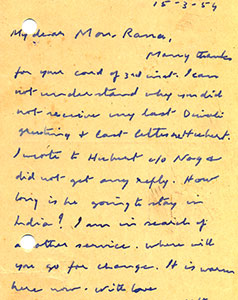 15-3-54
My dear Mon. Rana,
Many thanks
for your card of 3rd inst. I can
not understand why you did
not receive my last Diwali
greeting & last letter re Hubert.
I wrote to Hubert c/o Naga
did not get any reply. How
long is he going to stay in
India? I am in search of
another service. where will
you go for change. It is warm
here now. With love